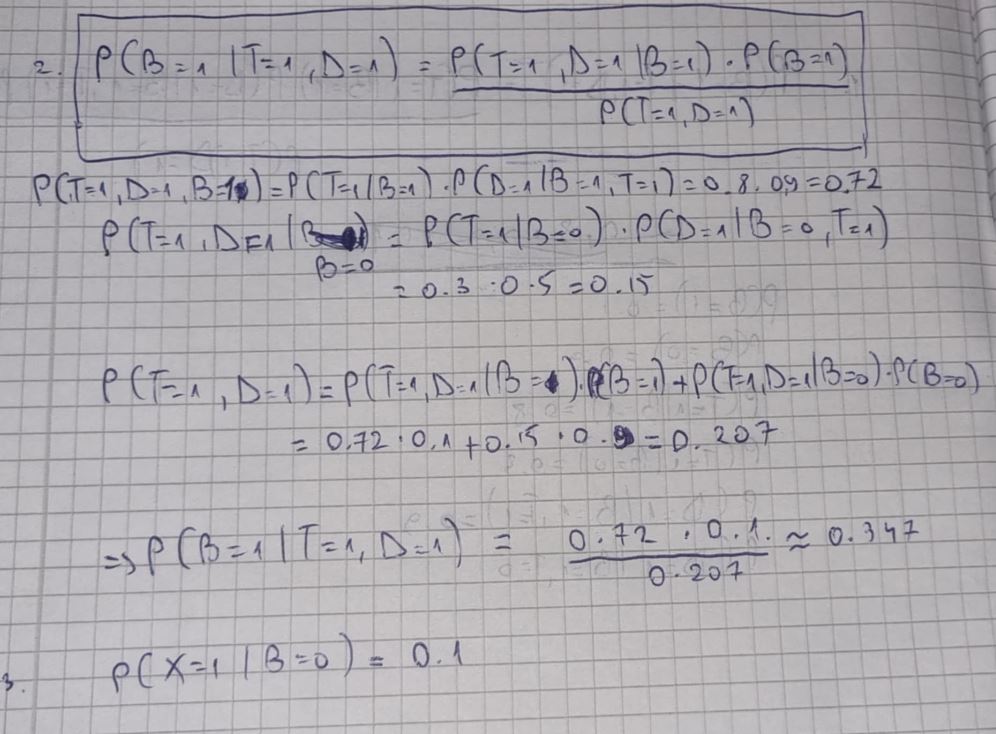 2. P(B=1 | T=1, D=1) = P(T=1, D=1 | B=1) · P(B=1)
P(T=1, D=1)
P(T=1, D=1, B=1) = P(T=1 | B=1) · P(D=1 | B=1, T=1) = 0.8 · 0.9 = 0.72
P(T=1, D=1 | ) = P(T=1 | B=0) · P(D=1 | B=0, T=1)
B=0
= 0.3 · 0.5 = 0.15
P(T=1, D=1) = P(T=1, D=1 | B=1) · P(B=1) + P(T=1, D=1 | B=0) · P(B=0)
= 0.72 · 0.1 + 0.15 · 0.9 = 0.207
=> P(B=1 | T=1, D=1) = 0.72 · 0.1 ≈ 0.347
0.207
3. P(X=1 | B=0) = 0.1